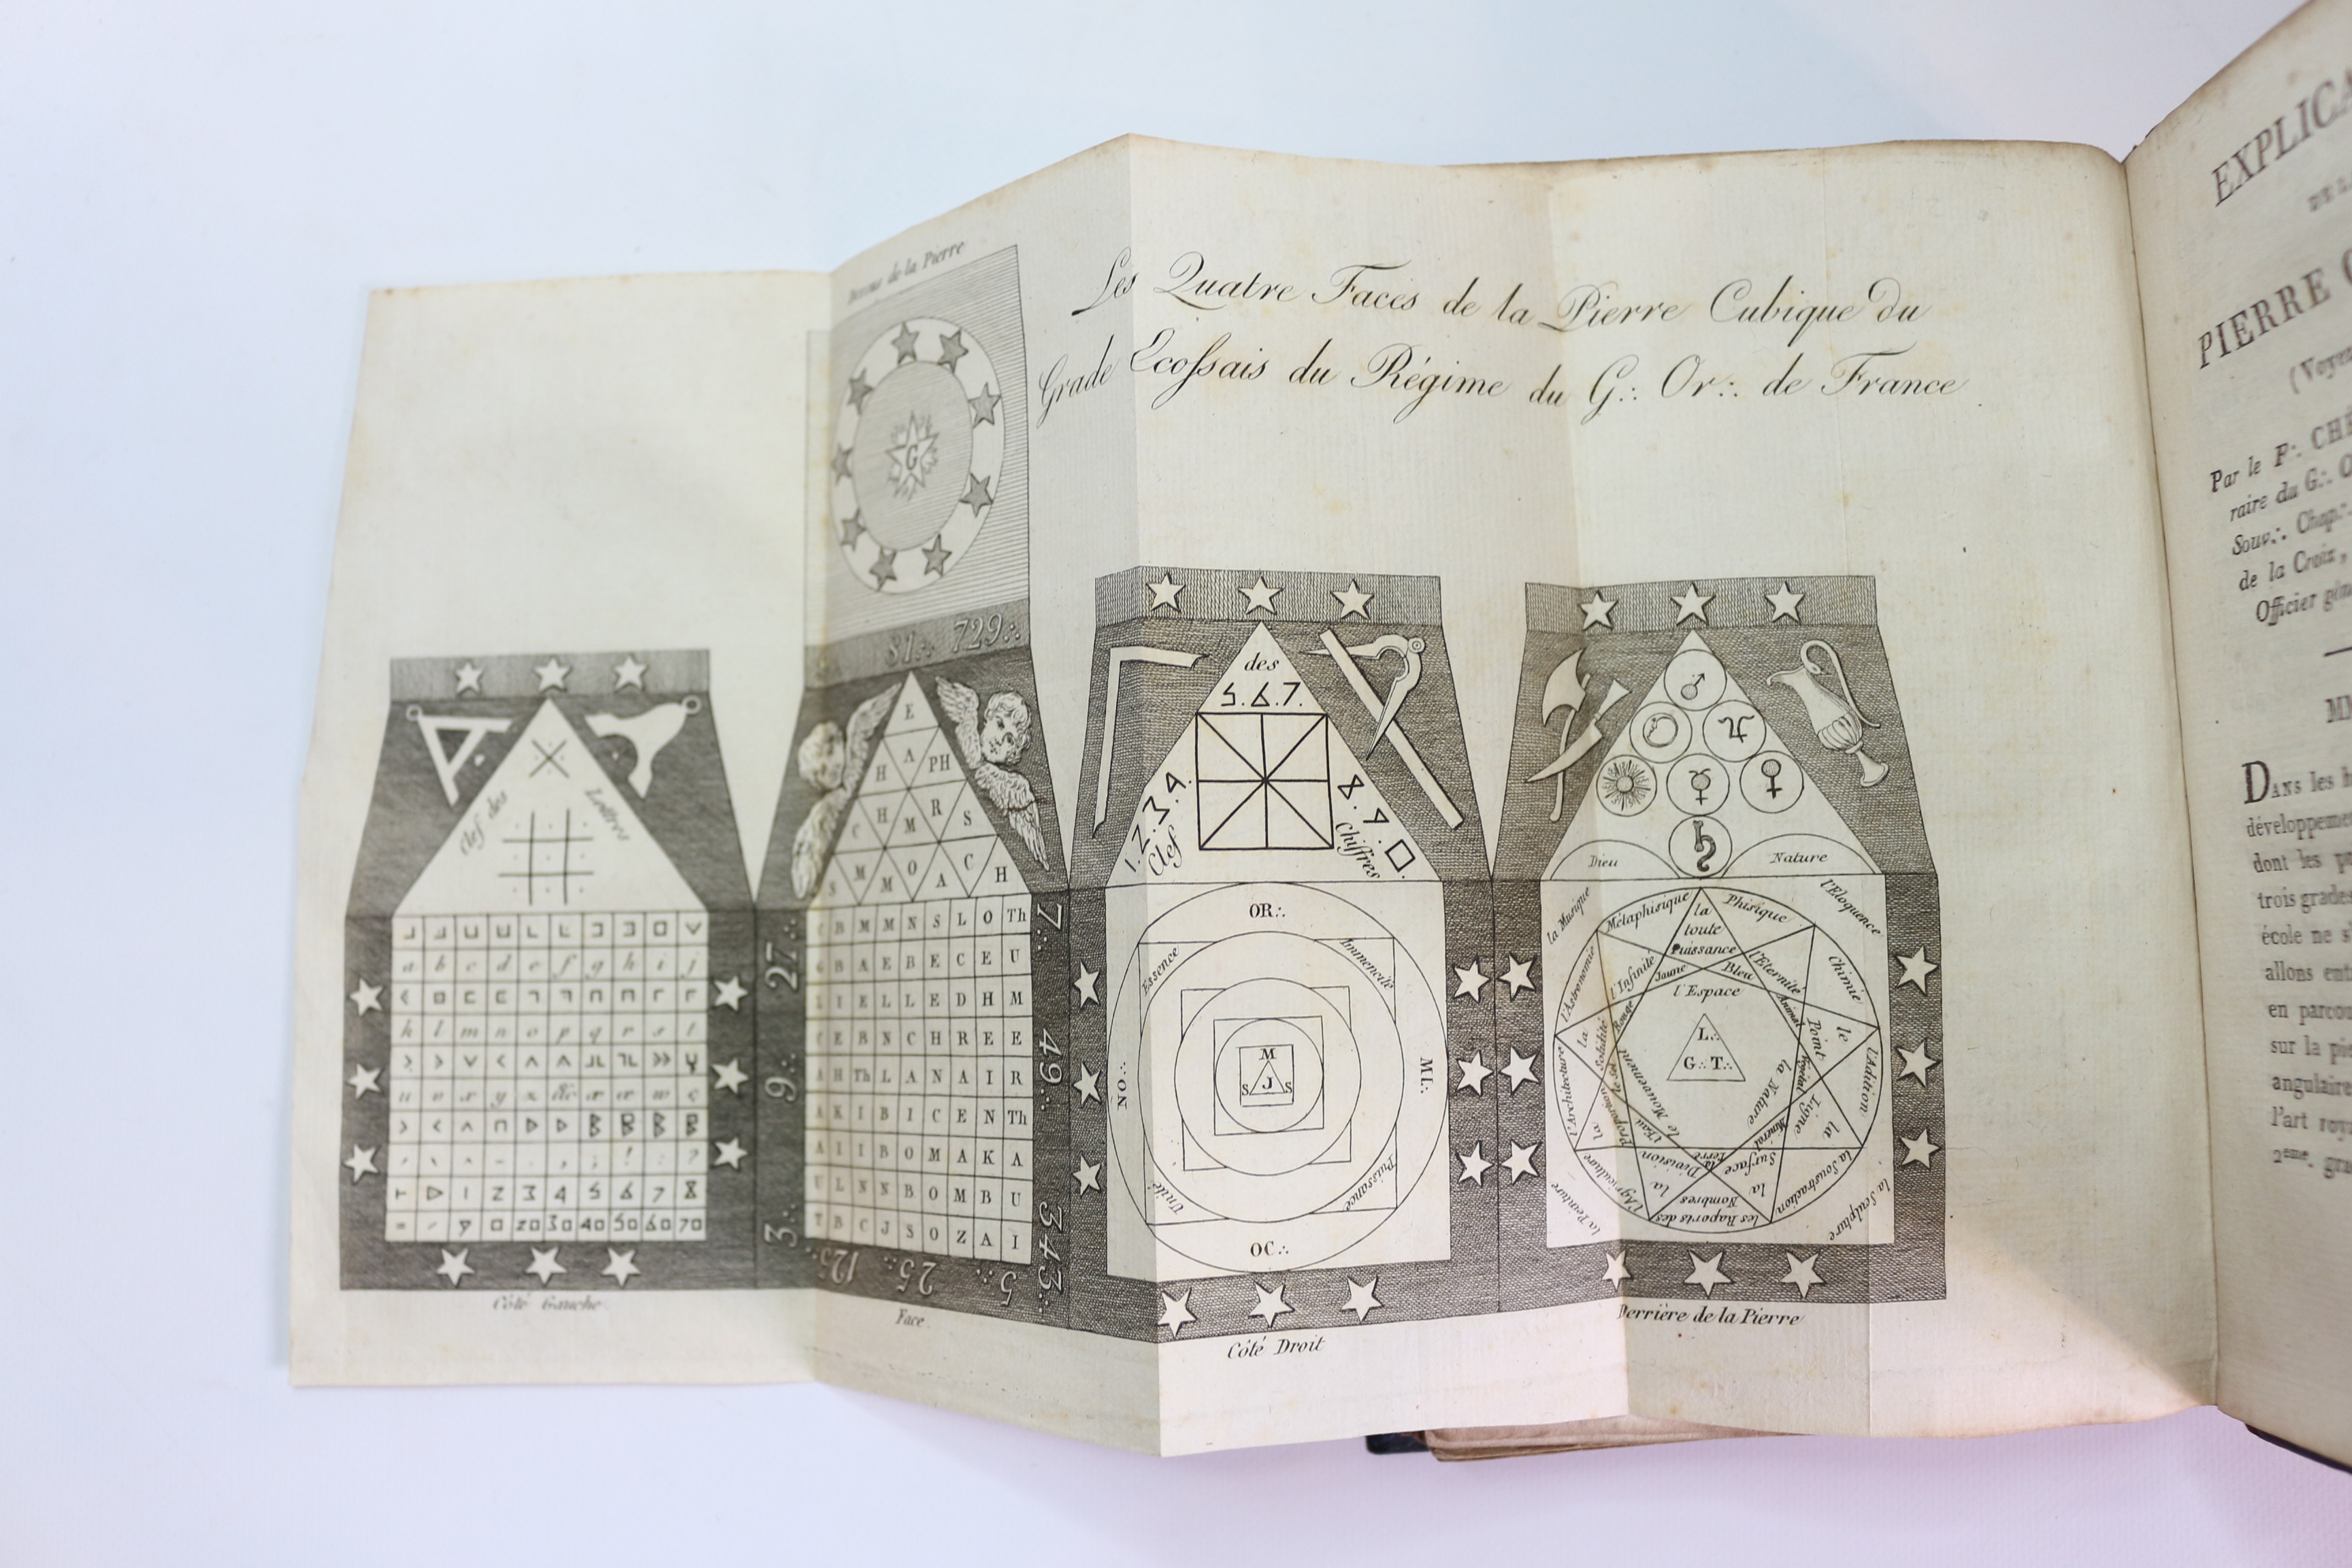 Les Quatre Faces de la Pierre Cubique du
Grade Ecossais du Régime du G∴ Or∴ de France.
Dessus de la Pierre
G
81∴ 729∴
Clef des Lettres
a b c d e f g h i j
k l m n o p q r s t
u v x y z &c æ œ w ç
1 2 3 4 5 6 7 8
9 0 20 30 40 50 60 70
Côté Gauche
E
H A PH
C H M R S
S M M O A C H
27∴
9∴
3∴
C B M M N S L O Th
G B A E B E C E U
L I E L L E D H M
C E B N C H R E E
A H Th L A N A I R
A K I B I C E N Th
A I I B O M A K A
U L N N B O M B U
T B C J S O Z A I
7∴
49∴
343∴
125∴ 25∴ 5∴
Face
des
5.6.7.
1.2.3.4.
8.9.0.
Clef
Chiffres
OR∴
Essence
Immencité
NO∴
MI∴
M
S J S
Unité
Puissance
OC∴
Côté Droit
Dieu
Nature
la Musique
l'Eloquence
Métaphisique
Phisique
la
toute
Puissance
l'Infinité
l'Eternité
Jaune
Bleu
Rouge
l'Espace
l'Astronomie
Chimie
la Solidité
le Point
Animal
L∴
G∴ T∴
l'Architecture
l'Addition
le Mouvement
la Nature
Végétal
la Proportion
le Sel
l'Eau
la Ligne
Minéral
la Division
la Terre
la Surface
l'Agriculture
la Soustraction
les Raports des Nombres
la Peinture
la Sculpture
Derrière de la Pierre
EXPLICA
DE L
PIERRE C
(Voyez
Par le F∴ CHE
raire du G∴ O
Souv∴ Chap∴
de la Croix,
Officier gén
DANS les
développeme
dont les p
trois grades
école ne s'
allons ent
en parcou
sur la pie
angulaire
l'art roy
2eme. gra